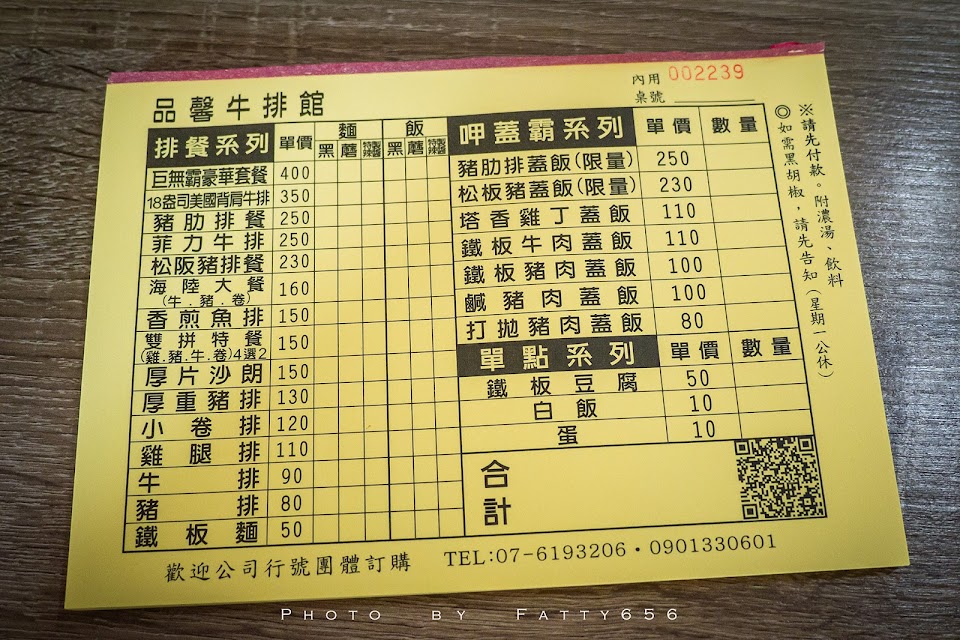 品馨牛排館
內用 002239
桌號
排餐系列 單價 麵 飯
黑 磨 黑 磨
巨無霸豪華套餐 400
18盎司美國背肩牛排 350
豬肋排餐 250
菲力牛排 250
松阪豬排餐 230
海陸大餐 160
(牛.豬.卷)
香煎魚排 150
雙拼特餐 150
(雞.豬.牛.卷)4選2
厚片沙朗 150
厚重豬排 130
小卷排 120
雞腿排 110
牛排 90
豬排 80
鐵板麵 50
呷蓋霸系列 單價 數量
豬肋排蓋飯(限量) 250
松板豬蓋飯(限量) 230
塔香雞丁蓋飯 110
鐵板牛肉蓋飯 110
鐵板豬肉蓋飯 100
鹹豬肉蓋飯 100
打拋豬肉蓋飯 80
單點系列 單價 數量
鐵板豆腐 50
白飯 10
蛋 10
合計
※請先付款。附濃湯、飲料
◎如需黑胡椒，請先告知(星期一公休)
歡迎公司行號團體訂購 TEL:07-6193206・0901330601
PHOTO BY FATTY656